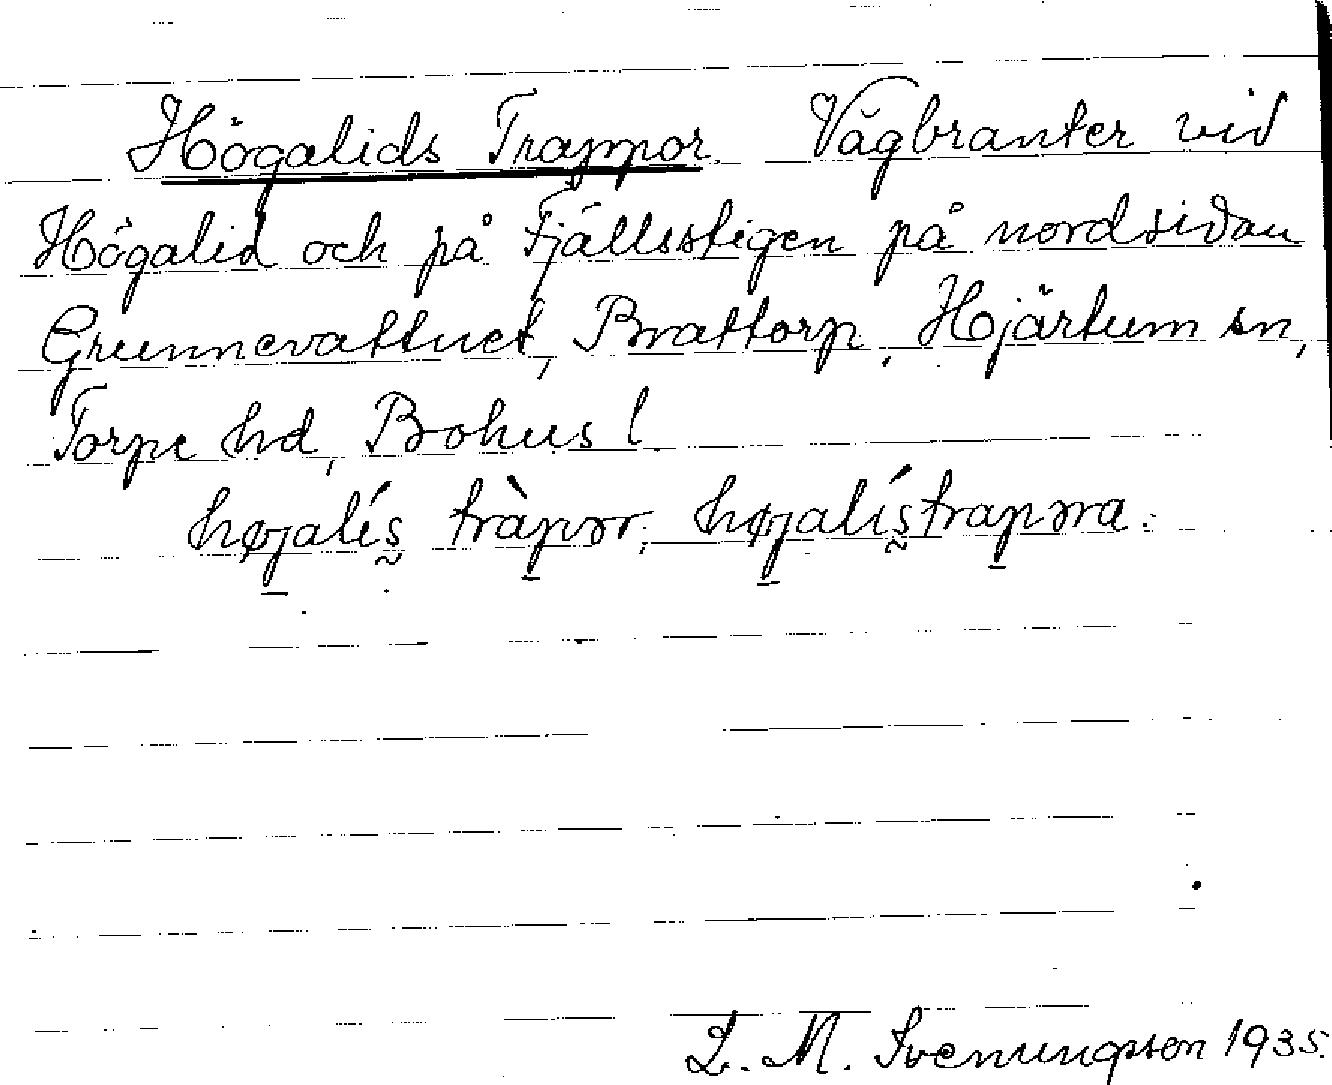 Högalids Trappor. Vägbranter vid
Högalid och på Fjällsstigen på nordsidan
Grunnevattnet, Brattorp, Hjärtum sn,
Torpe hd, Bohus l.
högalís tràpər; högalístrapəra.
L. M. Svenungsson 1935.